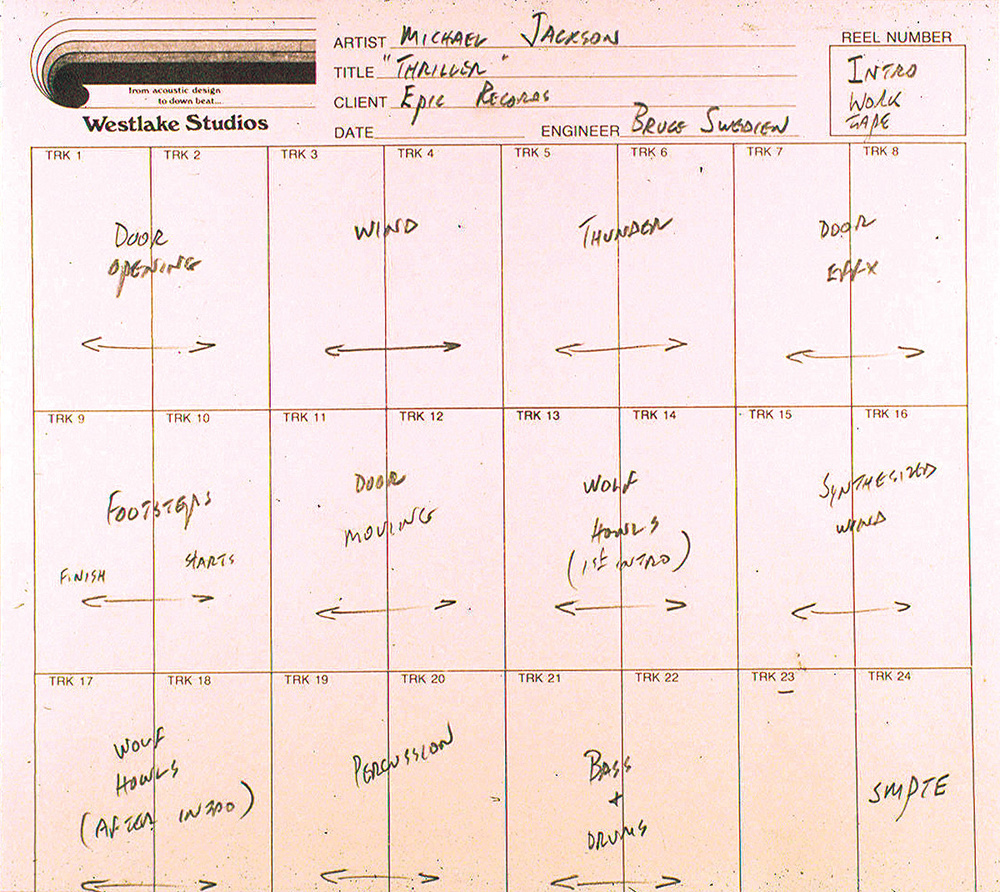 ARTIST MICHAEL JACKSON
TITLE "THRILLER"
CLIENT EPIC RECORDS
DATE ENGINEER BRUCE SWEDIEN
REEL NUMBER
INTRO
WORK
TAPE
from acoustic design
to down beat...
Westlake Studios
TRK 1 TRK 2 TRK 3 TRK 4 TRK 5 TRK 6 TRK 7 TRK 8
DOOR
OPENING
WIND
THUNDER
DOOR
EFFX
TRK 9 TRK 10 TRK 11 TRK 12 TRK 13 TRK 14 TRK 15 TRK 16
FOOTSTEPS
FINISH STARTS
DOOR
MOVING
WOLF
HOWLS
(1ST INTRO)
SYNTHESIZED
WIND
TRK 17 TRK 18 TRK 19 TRK 20 TRK 21 TRK 22 TRK 23 TRK 24
WOLF
HOWLS
(AFTER INTRO)
PERCUSSION
BASS
+
DRUMS
SMPTE